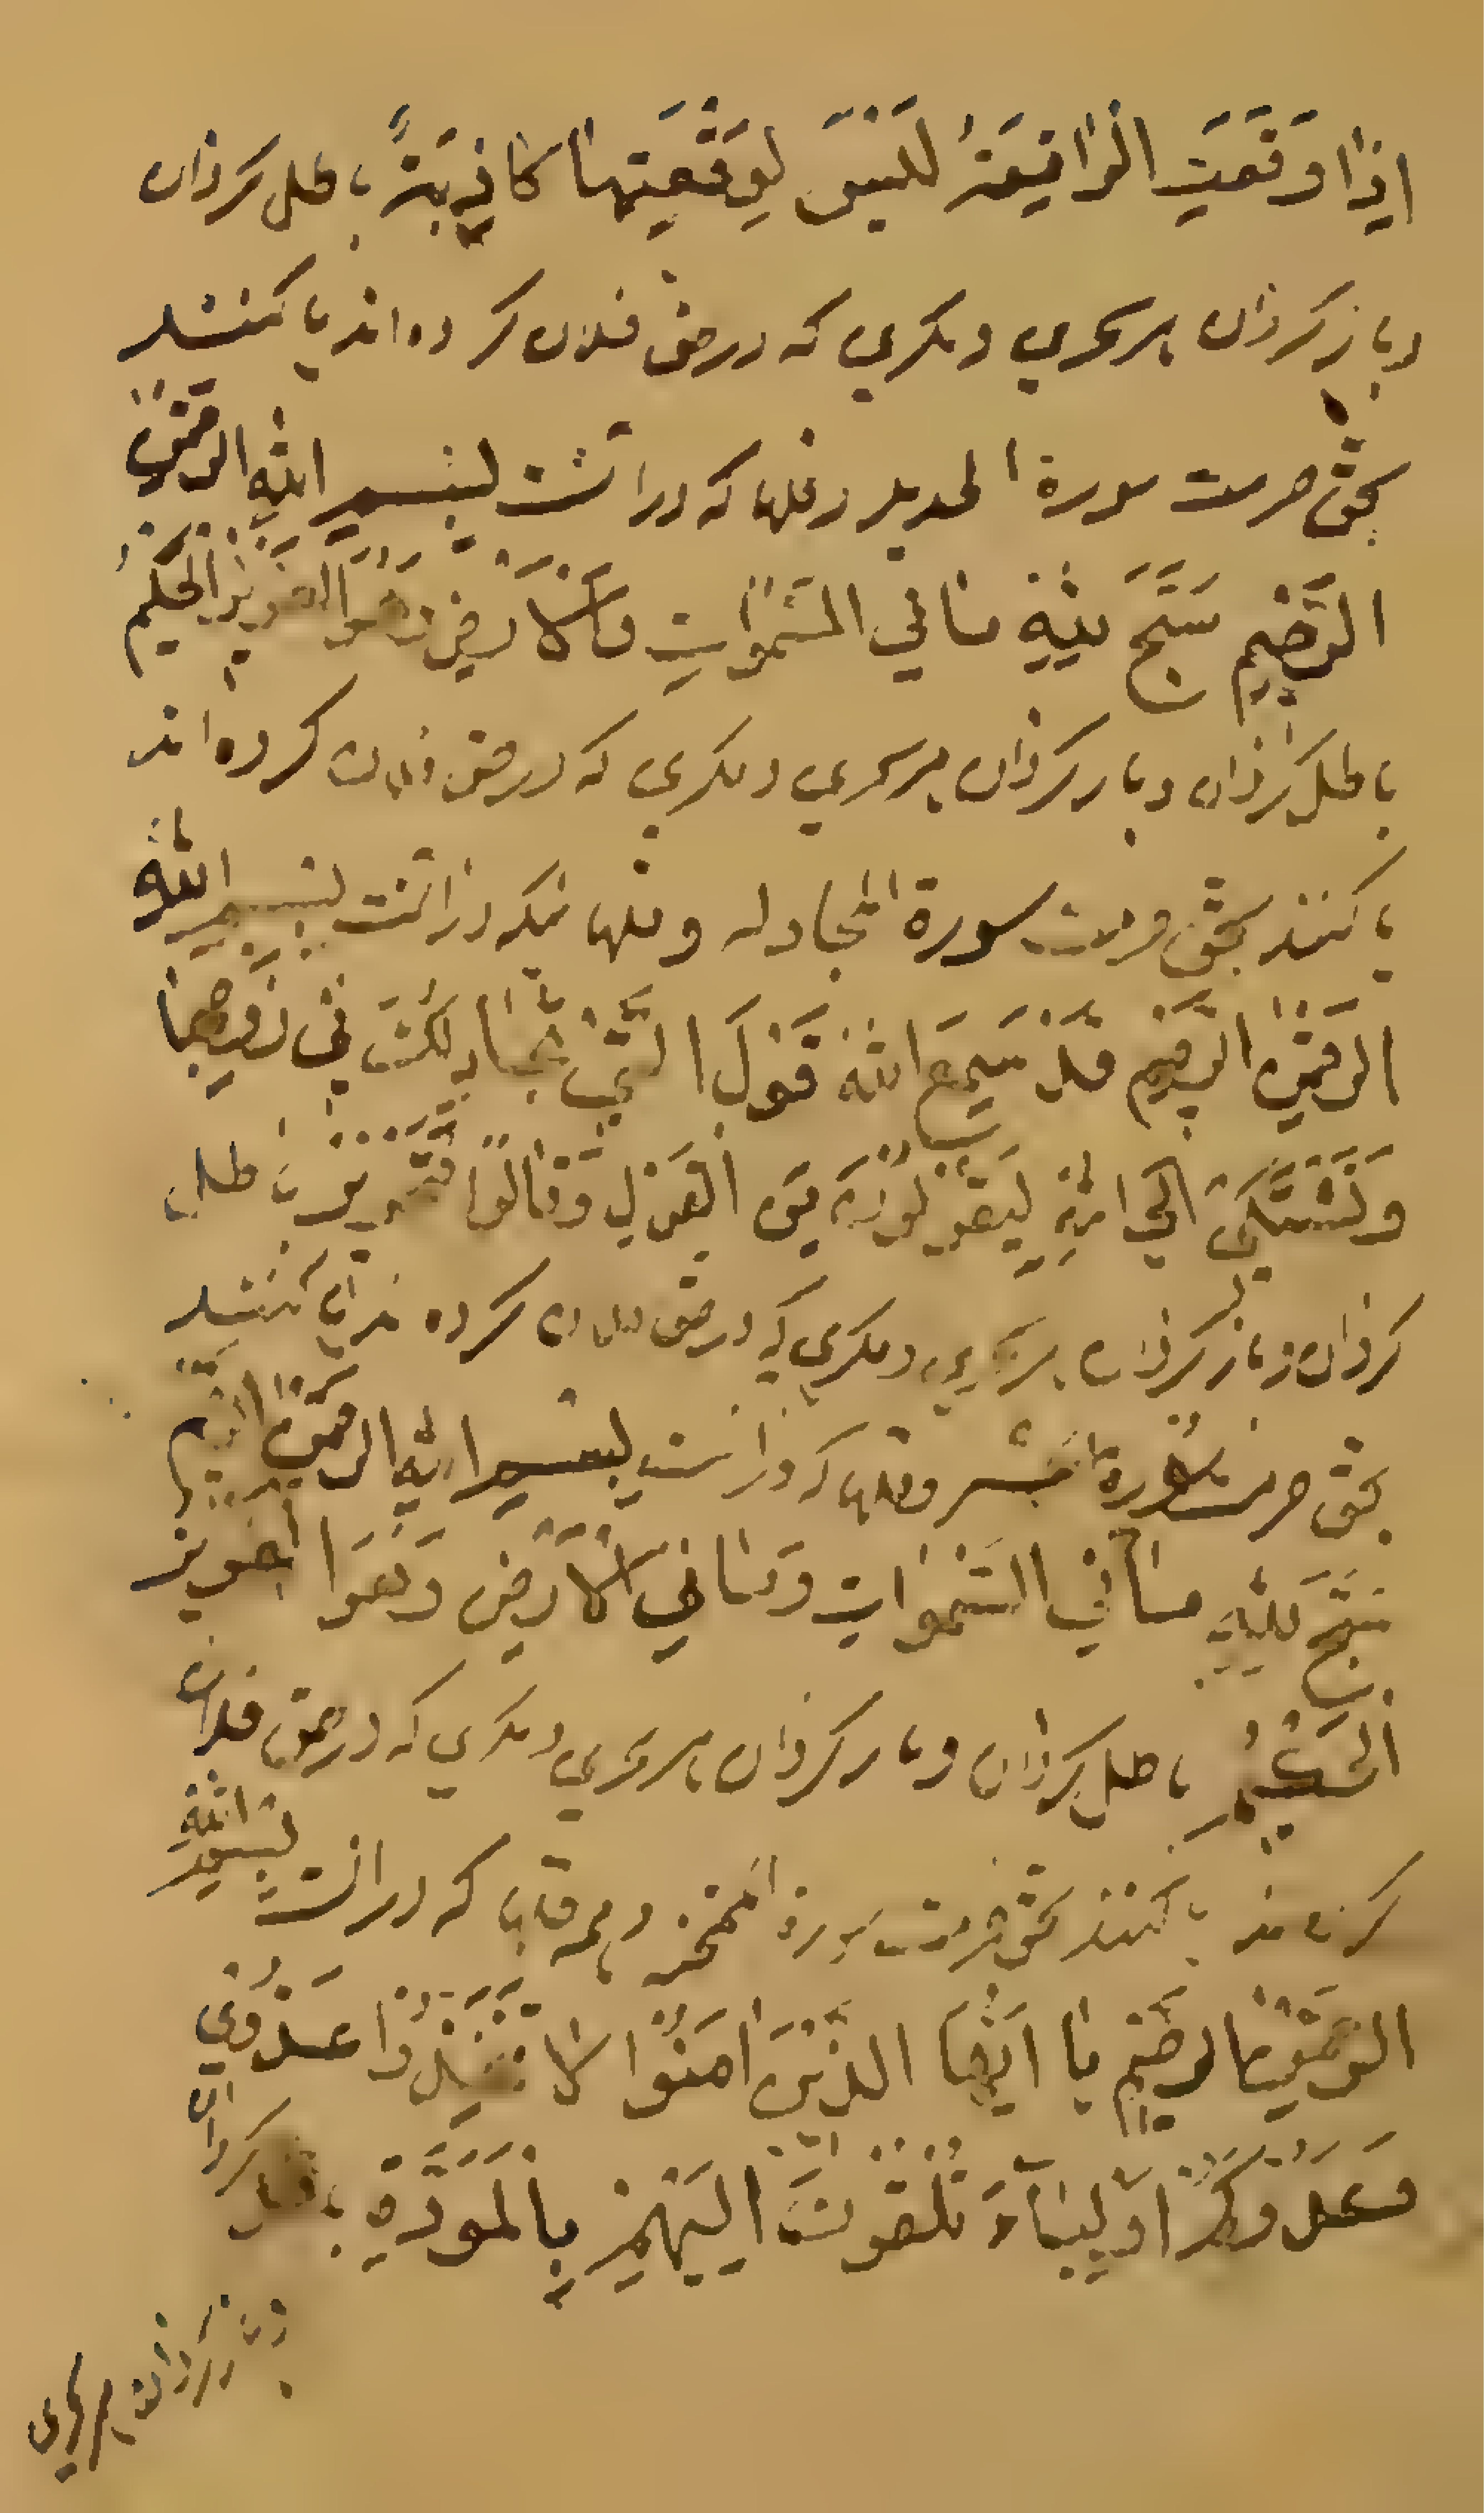 اِذَا وَقَعَتِ الْوَاقِعَةُ لَيْسَ لِوَقْعَتِهَا كَاذِبَةٌ باطل کردان
و باز کردان هر سحری و مکری که در حق فلان کرده اند یا کنند
بحق حرمت سورة الحدید و فلها که در انست بسم الله الرحمن
الرحیم سَبَّحَ لِلّٰهِ مَا فِي السَّمٰوَاتِ وَالْاَرْضِ وَهُوَ الْعَزِیزُ الْحَکِیمُ
باطل کردان و باز کردان هر سحری و مکری که در حق فلان کرده اند
یا کنند بحق حرمت سورة المجادله و فلها ئیکه در انست بسم الله
الرحمن الرحیم قَدْ سَمِعَ اللّٰهُ قَوْلَ الَّتِي تُجَادِلُكَ فِي زَوْجِهَا
وَتَشْتَكِي اِلَى اللّٰهِ الْقَوْلِ وَ باطل
کردان و باز کردان هر سحری و مکری که در حق فلان کرده اند یا کنند
بحق حرمت سورة حشر و فلها که در انست بسم الله الرحمن الرحیم
سَبَّحَ لِلّٰهِ مَا فِي السَّمٰوَاتِ وَمَا فِي الْاَرْضِ وَهُوَ الْعَزِیز
باطل کردان و باز کردان هر سحری و مکری که در حق فلان
کرده اند یا کنند بحق حرمت سورة الممتحنه و هر که در انست بسم الله
الرحمن الرحیم یَا اَیُّهَا الَّذِیْنَ اٰمَنُوْا لَا تَتَّخِذُوْا عَدُوِّي
وَعَدُوَّكُمْ اَوْلِیَآءَ تُلْقُوْنَ اِلَیْهِمْ بِالْمَوَدَّةِ باطل کردان
و باز کردان هر سحری